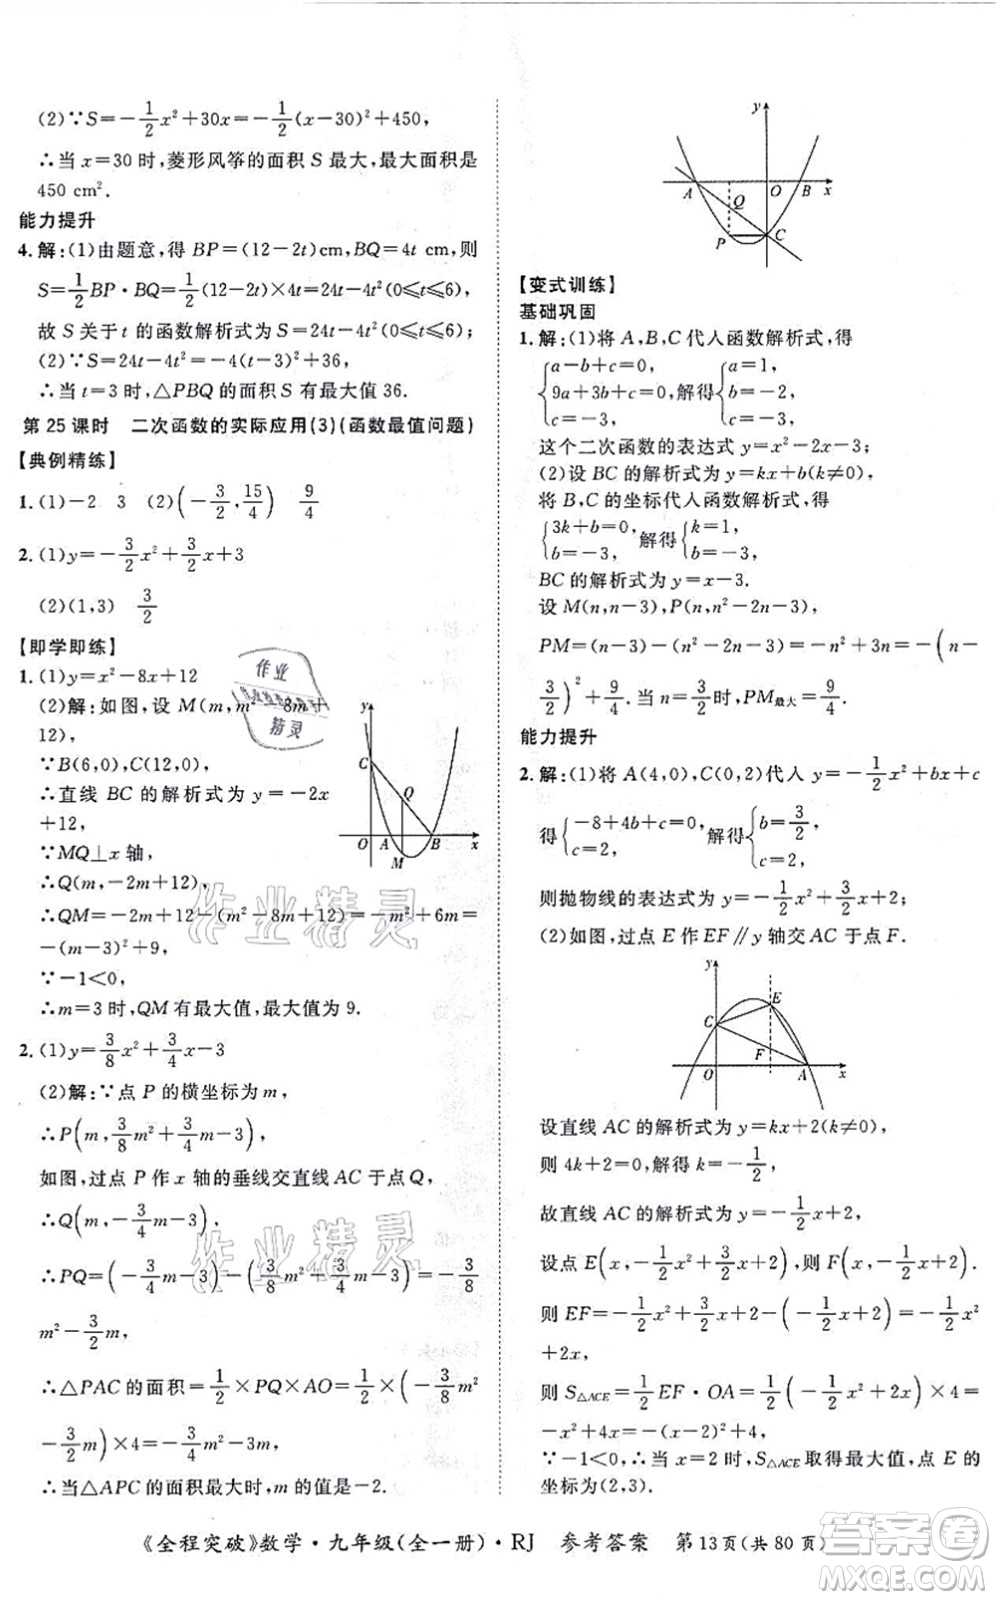 (2)∵S=-1/2x²+30x=-1/2(x-30)²+450,
∴当 x=30 时,菱形风筝的面积 S 最大,最大面积是
450 cm².
能力提升
4.解:(1)由题意,得 BP=(12-2t)cm,BQ=4t cm,则
S=1/2BP·BQ=1/2(12-2t)×4t=24t-4t²(0≤t≤6),
故 S 关于 t 的函数解析式为 S=24t-4t²(0≤t≤6);
(2)∵S=24t-4t²=-4(t-3)²+36,
∴当 t=3 时,△PBQ 的面积 S 有最大值 36.
第 25 课时 二次函数的实际应用(3)(函数最值问题)
【典例精练】
1.(1)-2 3 (2)(-3/2,15/4) 9/4
2.(1)y=-3/2x²+3/2x+3
(2)(1,3) 3/2
【即学即练】
1.(1)y=x²-8x+12
(2)解:如图,设 M(m,m²-8m+
12),
∵B(6,0),C(0,12),
∴直线 BC 的解析式为 y=-2x
+12,
∵MQ⊥x 轴,
∴Q(m,-2m+12),
∴QM=-2m+12-(m²-8m+12)=
-(m-3)²+9,
∵-1<0,
∴m=3 时,QM 有最大值,最大值为 9.
y
C
Q
O A B x
M
2.(1)y=3/8x²+3/4x-3
(2)解:∵点 P 的横坐标为 m,
∴P(m,3/8m²+3/4m-3),
如图,过点 P 作 x 轴的垂线交直线 AC 于点 Q,
∴Q(m,-3/4m-3),
∴PQ=(-3/4m-3)-(3/8m²+3/4m-3)=-3/8
m²-3/2m,
∴△PAC 的面积=1/2×PQ×AO=1/2×(-3/8m²
-3/2m)×4=-3/4m²-3m,
∴当△APC 的面积最大时,m 的值是-2.
y
A O B x
Q
P C
【变式训练】
基础巩固
1.解:(1)将 A,B,C 代入函数解析式,得
{a-b+c=0, 9a+3b+c=0, c=-3, 解得{a=1, b=-2, c=-3,
这个二次函数的表达式为 y=x²-2x-3;
(2)设 BC 的解析式为 y=kx+b(k≠0),
将 B,C 的坐标代入函数解析式,得
{3k+b=0, b=-3, 解得{k=1, b=-3,
BC 的解析式为 y=x-3.
设 M(n,n-3),P(n,n²-2n-3),
PM=(n-3)-(n²-2n-3)=-n²+3n=-(n-
3/2)²+9/4.当 n=3/2时,PM最大=9/4.
能力提升
2.解:(1)将 A(4,0),C(0,2)代入 y=-1/2x²+bx+c
得{-8+4b+c=0, c=2, 解得{b=3/2, c=2,
则抛物线的表达式为 y=-1/2x²+3/2x+2,
(2)如图,过点 E 作 EF∥y 轴交 AC 于点 F.
y
E
C
F
O A x
设直线 AC 的解析式为 y=kx+2(k≠0),
则 4k+2=0,解得 k=-1/2,
故直线 AC 的解析式为 y=-1/2x+2,
设点 E(x,-1/2x²+3/2x+2),则 F(x,-1/2x+2).
则 EF=-1/2x²+3/2x+2-(-1/2x+2)=-1/2x²
+2x,
则 S△ACE=1/2EF·OA=1/2(-1/2x²+2x)×4=
-x²+4x=-(x-2)²+4,
∵-1<0,故当 x=2 时,S△ACE取得最大值,点 E 的
坐标为(2,3).
《全程突破》数学·九年级(全一册)·RJ 参考答案 第 13页(共 80 页)
作业
精灵
作业精灵
作业精灵
答案圈
MXQE.COM